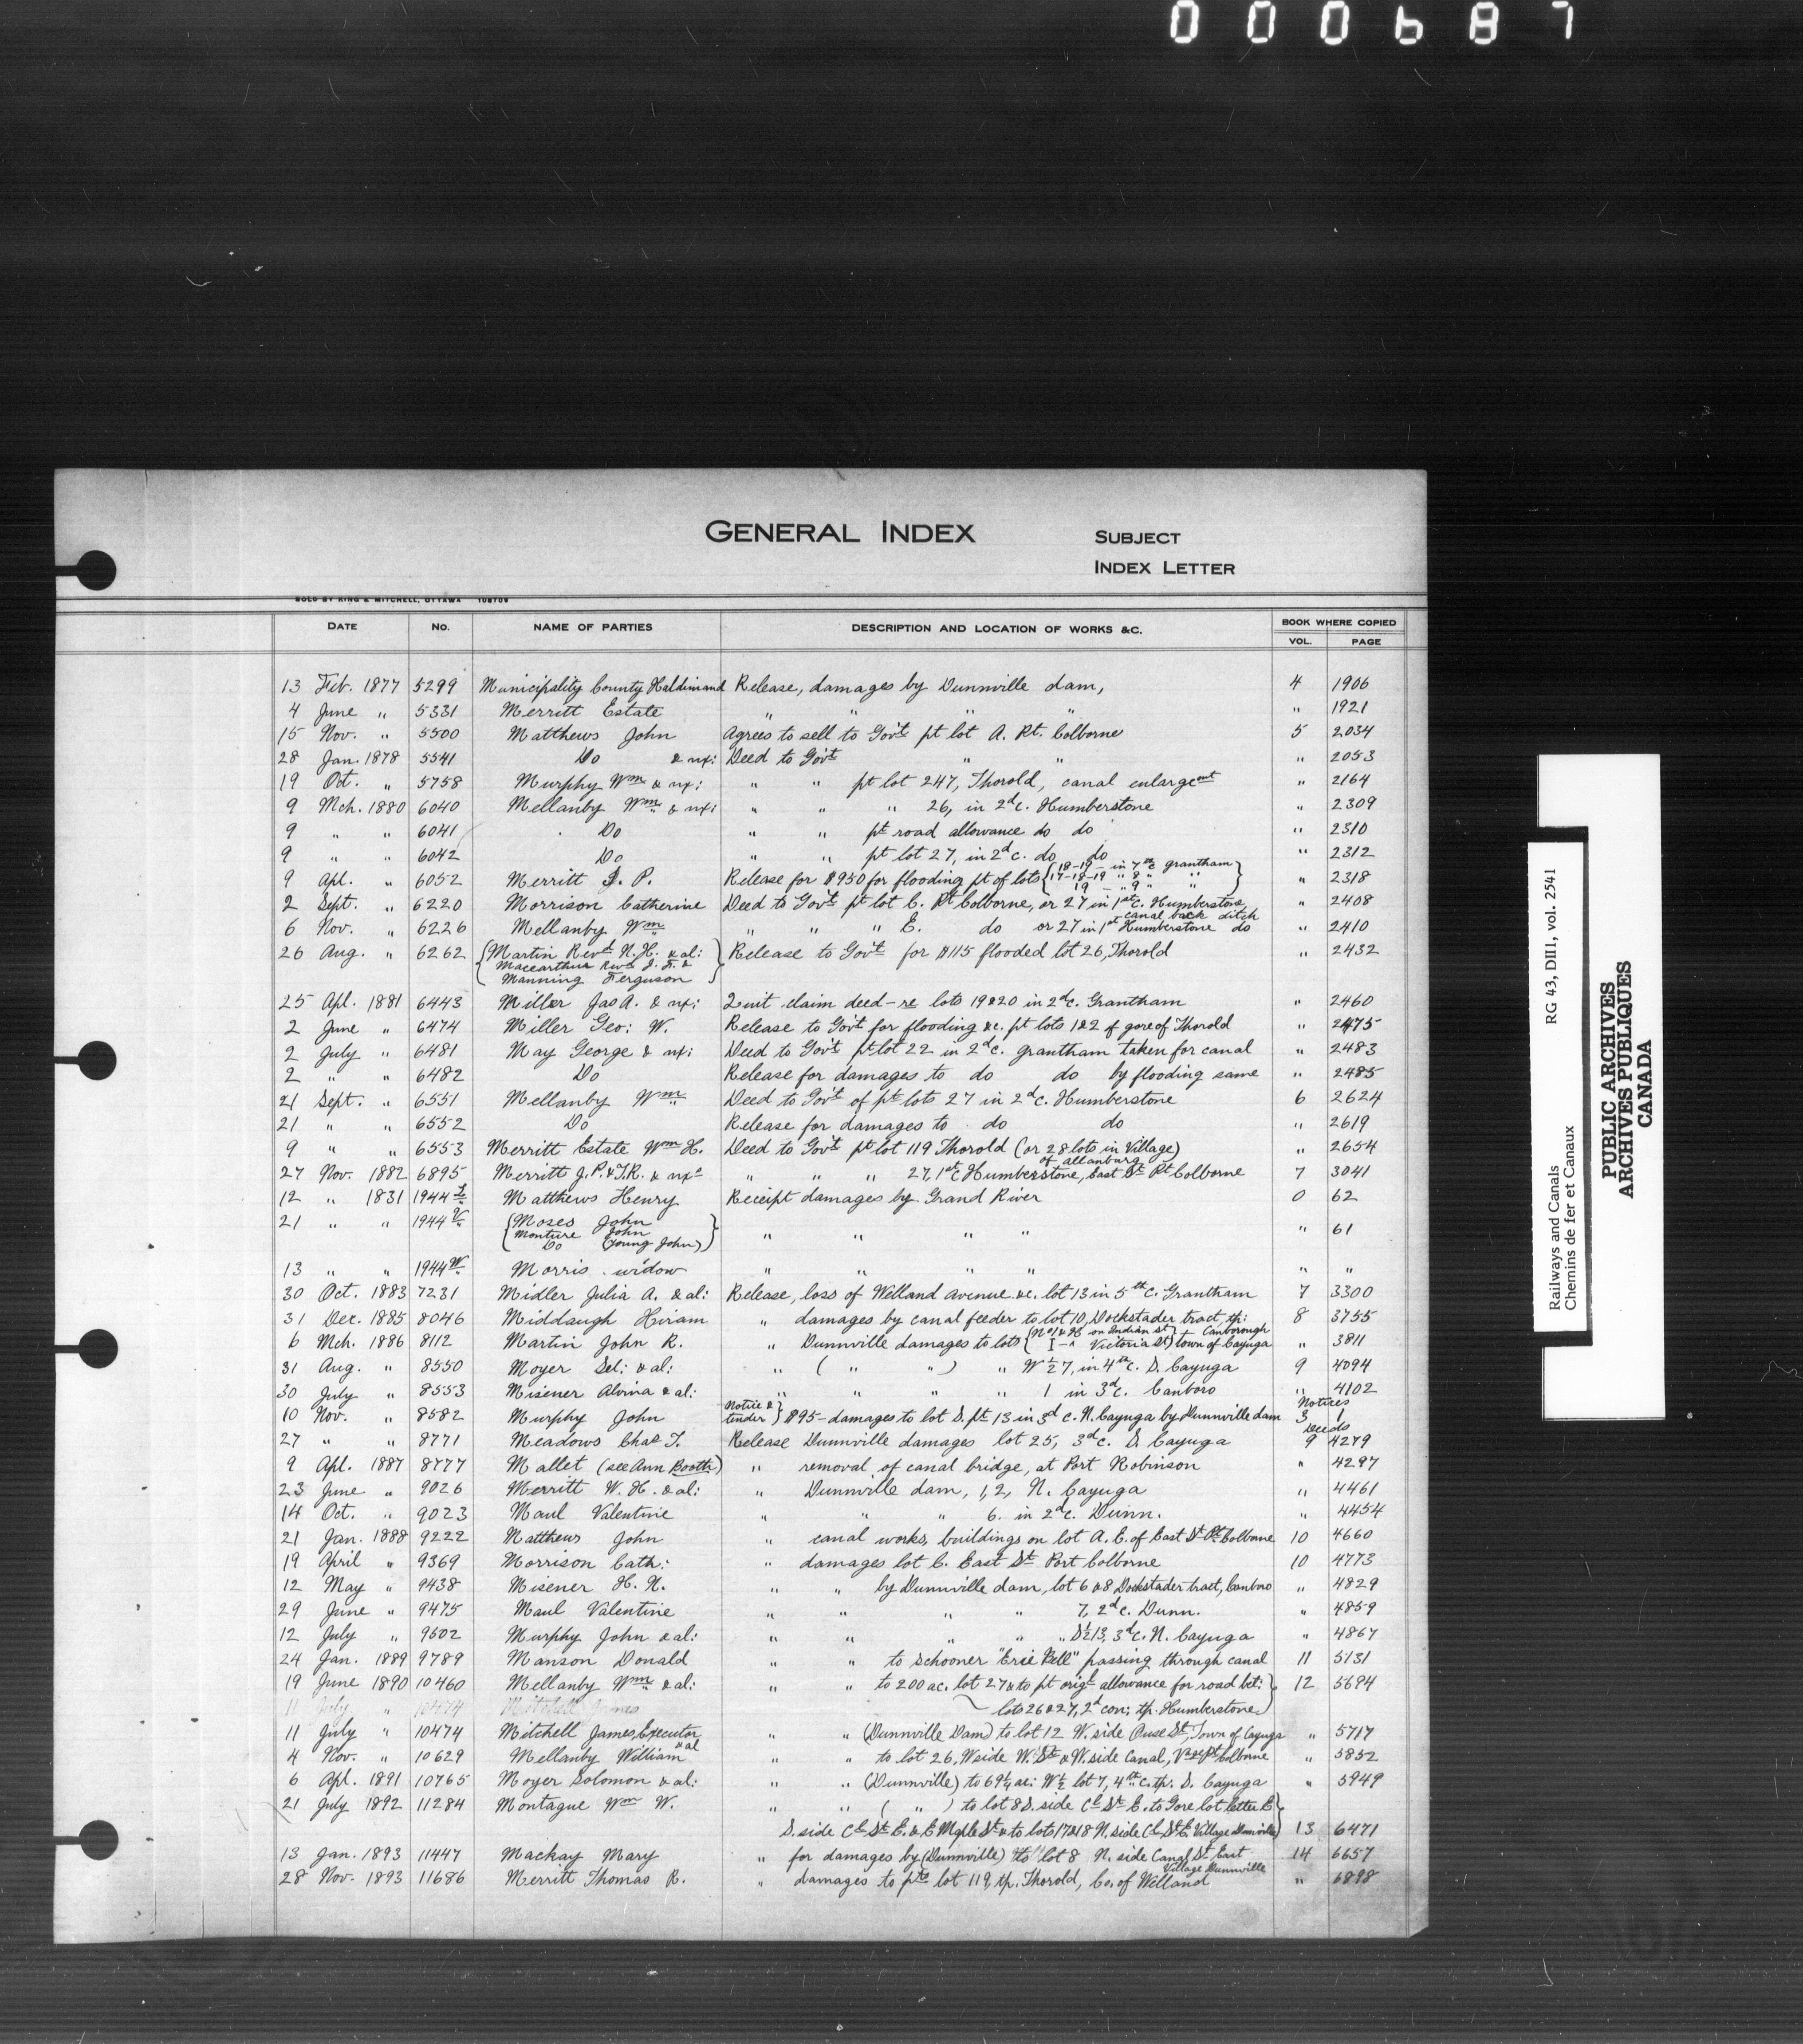 000687
GENERAL INDEX
SUBJECT
INDEX LETTER
SOLD BY KING & MITCHELL, OTTAWA 108709
DATE No. NAME OF PARTIES DESCRIPTION AND LOCATION OF WORKS &C. BOOK WHERE COPIED
VOL. PAGE
13 Feb. 1877 5299 Municipality County Haldimand Release, damages by Dunnville dam, 4 1906
4 June " 5331 Merritt Estate " " " " " 1921
15 Nov. " 5500 Matthews John Agrees to sell to Gov't pt lot A. Pt. Colborne 5 2034
28 Jan. 1878 5541 Do & ux: Deed to Gov't " " " 2053
19 Oct. " 5758 Murphy Wm & ux: " " pt lot 247, Thorold, canal enlargent " 2164
9 Mch. 1880 6040 Mellanby Wm & ux: " " " 26, in 2d c. Humberstone " 2309
9 " " 6041 Do " " pt road allowance do do " 2310
9 " " 6042 Do " " pt lot 27, in 2d c. do do " 2312
9 Apl. " 6052 Merritt J. P. Release for $950 for flooding pt of lots { 18-19 - in 7th c Grantham } " 2318
17-18-19 " 8 " "
19 - " 9 " "
2 Sept. " 6220 Morrison Catherine Deed to Gov't pt lot C. Pt Colborne, or 27 in 1st c. Humberstone " 2408
canal back ditch
6 Nov. " 6226 Mellanby Wm " " " E. do or 27 in 1st Humberstone do " 2410
26 Aug. " 6262 { Martin Revd N. H. & al: } Release to Gov't for $115 flooded lot 26, Thorold " 2432
Macearthur Revd J. F. &
Manning Ferguson
25 Apl. 1881 6443 Miller Jas A. & ux: Quit claim deed - re lots 19 & 20 in 2d c. Grantham " 2460
2 June " 6474 Miller Geo: W. Release to Gov't for flooding &c. pt lots 1 & 2 of gore of Thorold " 2475
2 July " 6481 May George & ux: Deed to Gov't pt lot 22 in 2d c. Grantham taken for canal " 2483
2 " " 6482 Do Release for damages to do do by flooding same " 2485
21 Sept. " 6551 Mellanby Wm Deed to Gov't of pt lots 27 in 2d c. Humberstone 6 2624
21 " " 6552 Do Release for damages to do do " 2619
9 " " 6553 Merritt Estate Wm H. Deed to Gov't pt lot 119 Thorold (or 28 lots in Village) " 2654
of Allanburg
27 Nov. 1882 6895 Merritt J. P. & T. R. & ux " " " 27, 1st c Humberstone, East St Pt Colborne 7 3041
12 " 1831 1944 Matthews Henry Receipt damages by Grand River 0 62
21 " " 1944 V { Moses John } " " " " " 61
Monture John
Do (Young John)
13 " " 1944 W Morris widow " " " " " "
30 Oct. 1883 7231 Midler Julia A. & al: Release, loss of Welland avenue &c. lot 13 in 5th c. Grantham 7 3300
31 Dec. 1885 8046 Middaugh Hiram " damages by canal feeder to lot 10, Dockstader tract, tp: 8 3755
Canborough
6 Mch. 1886 8112 Martin John R. " Dunnville damages to lots { No 1 & H on Indian St } " 3811
Victoria St) town of Cayuga
31 Aug. " 8550 Moyer Sol: & al: " ( " " ) " W 1/2 7, in 4th c. S. Cayuga 9 4094
30 July " 8553 Misener Alvina & al: " " " " 1 in 3d c. Canboro " 4102
10 Nov. " 8582 Murphy John Notice & tender } $95 - damages to lot S. pt 13 in 3d c. N. Cayuga by Dunnville dam Notices 3 1
27 " " 8771 Meadows Chas T. Release Dunnville damages lot 25, 3d c. S. Cayuga Deeds 9 4279
9 Apl. 1887 8777 Mallet (see Ann Booth) " removal of canal bridge, at Port Robinson " 4297
23 June " 9026 Merritt W. H. & al: " Dunnville dam, 1, 2, N. Cayuga " 4461
14 Oct. " 9023 Maul Valentine " " " 6. in 2d c. Dunn. " 4454
21 Jan. 1888 9222 Matthews John " canal works, buildings on lot A. E. of East St Pt Colborne 10 4660
19 April " 9369 Morrison Cath: " damages lot C. East St Port Colborne 10 4773
12 May " 9438 Misener H. N. " " by Dunnville dam, lot 6 & 8 Dockstader tract, Canboro " 4829
29 June " 9475 Maul Valentine " " " " 7, 2d c. Dunn. " 4859
12 July " 9502 Murphy John & al: " " " " " S 1/2 13, 3d c. N. Cayuga " 4867
24 Jan. 1889 9789 Manson Donald " " to Schooner "Erie Bell" passing through canal 11 5131
19 June 1890 10460 Mellanby Wm & al: " " to 200 ac. lot 27 & to pt origl allowance for road bet: } 12 5694
11 July " 10474 Mitchell James lots 26 & 27, 2d con; tp. Humberstone
11 July " 10474 Mitchell James, Executor " " (Dunnville Dam) to lot 12 W. side Ouse St, Town of Cayuga " 5717
4 Nov. " 10629 Mellanby William & al " " to lot 26, W side W. St & W. side Canal, Colborne " 5852
6 Apl. 1891 10765 Moyer Solomon & al: " " (Dunnville) to 69 1/4 ac: W 1/2 lot 7, 4th c. tp. S. Cayuga " 5949
21 July 1892 11284 Montague Wm W. " " ( " ) to lot 8 S. side Cl St E. to Gore lot letter E }
S. side Cl St E. & E Maple St & to lots 17 & 18 N. side Cl St E. Village Dunnville) 13 6471
13 Jan. 1893 11447 Mackay Mary " for damages by (Dunnville) to lot 8 N. side Canal St East 14 6657
Village Dunnville
28 Nov. 1893 11686 Merritt Thomas R. " damages to pts lot 119, tp. Thorold, Co. of Welland " 6898
Railways and Canals
Chemins de fer et Canaux
RG 43, DIII, vol. 2541
PUBLIC ARCHIVES
ARCHIVES PUBLIQUES
CANADA